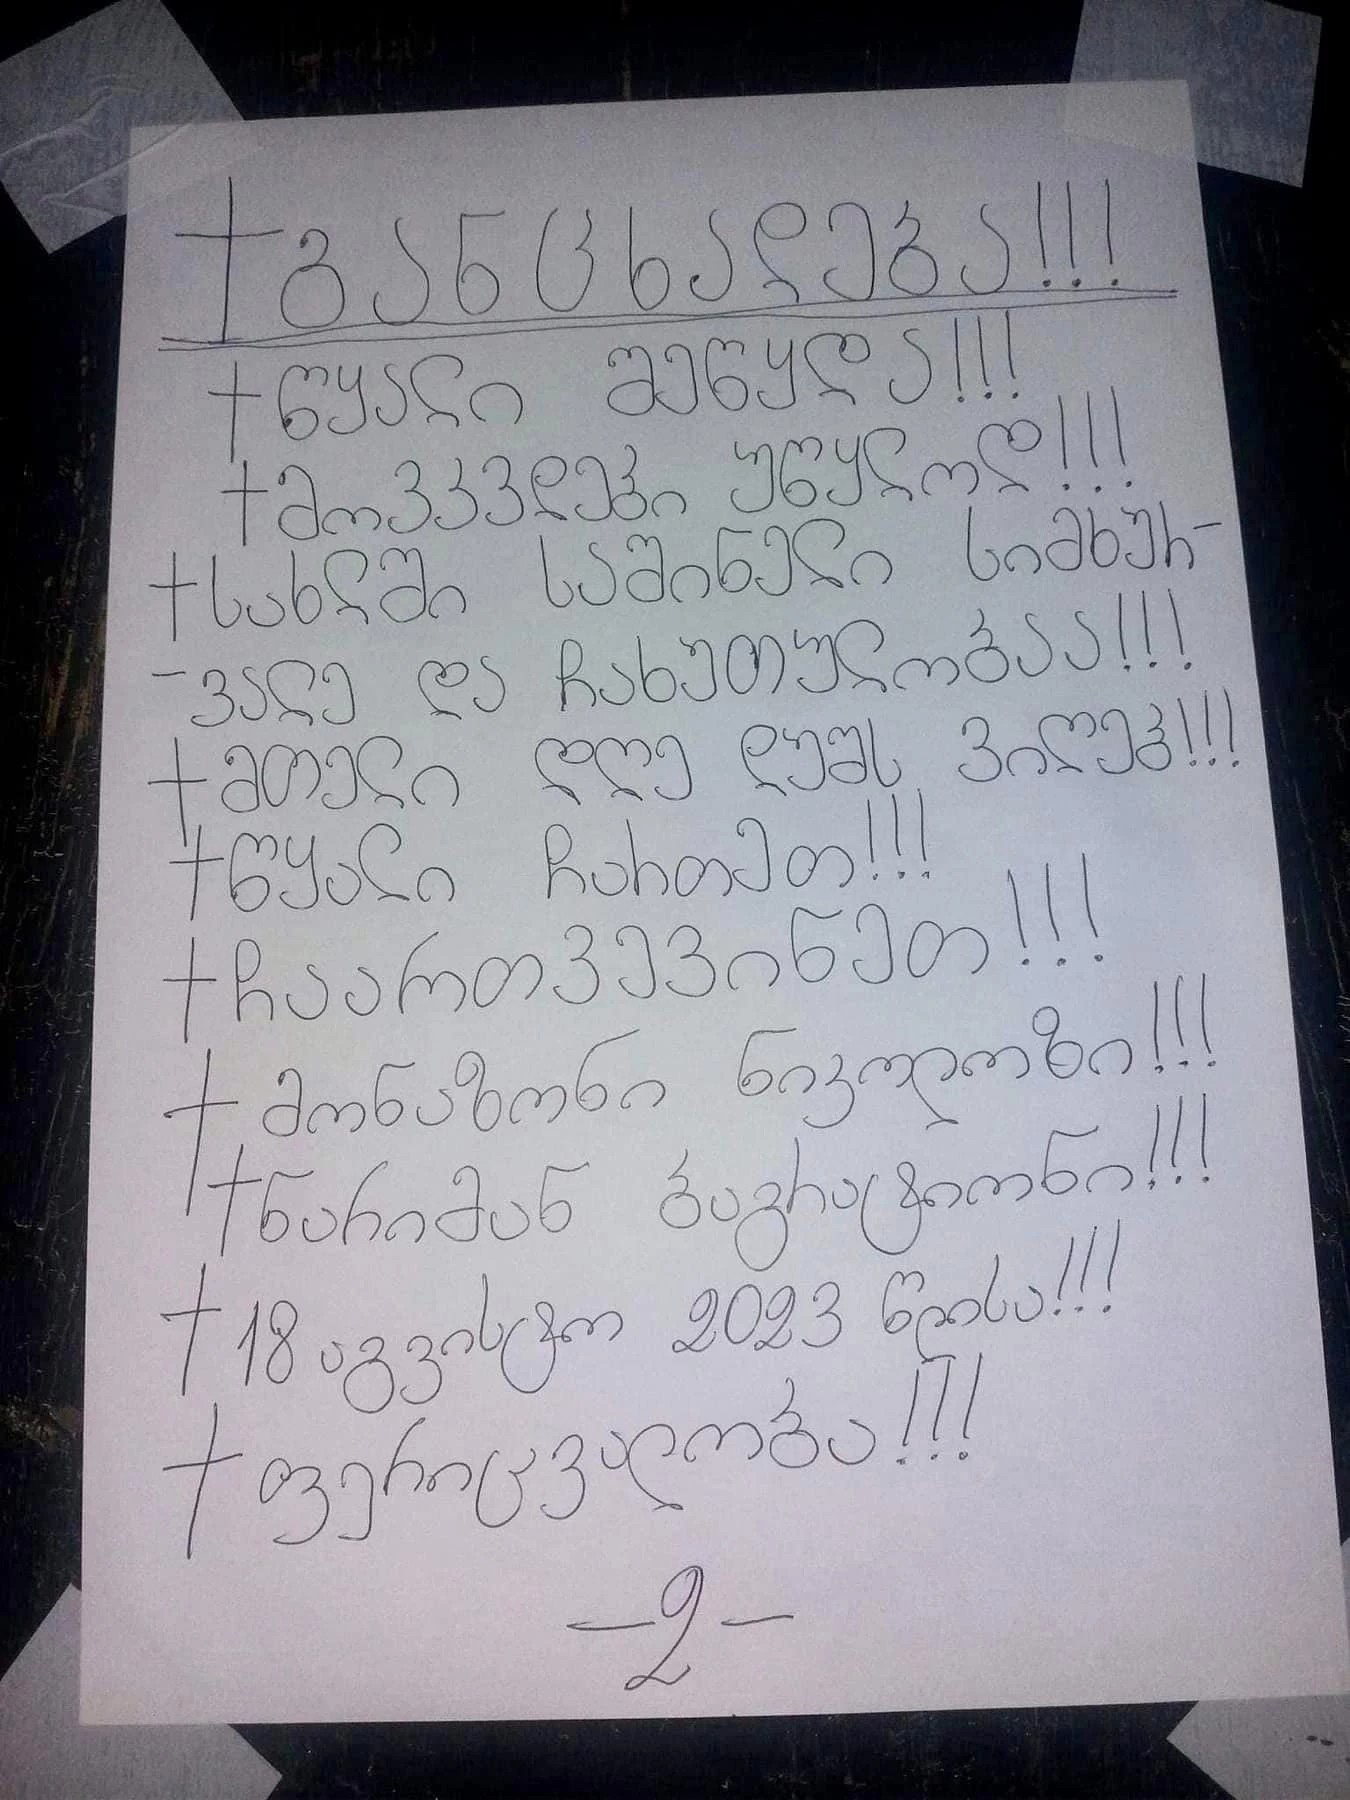 †განცხადება!!!
†წყალი შეწყდა!!!
†მოვკვდები უწყლოდ!!!
†სახლში საშინელი სიმხურ-
-ვალე და ჩახუთულობაა!!!
†მთელი დღე დუშს ვიღებ!!!
†წყალი ჩართეთ!!!
†ჩაართვევინეთ!!!
†მონაზონი ნიკოლოზი!!!
†ნარიმან ბაგრატიონი!!!
†18 აგვისტო 2023 წლისა!!!
†ფერიცვალობა!!!
-2-